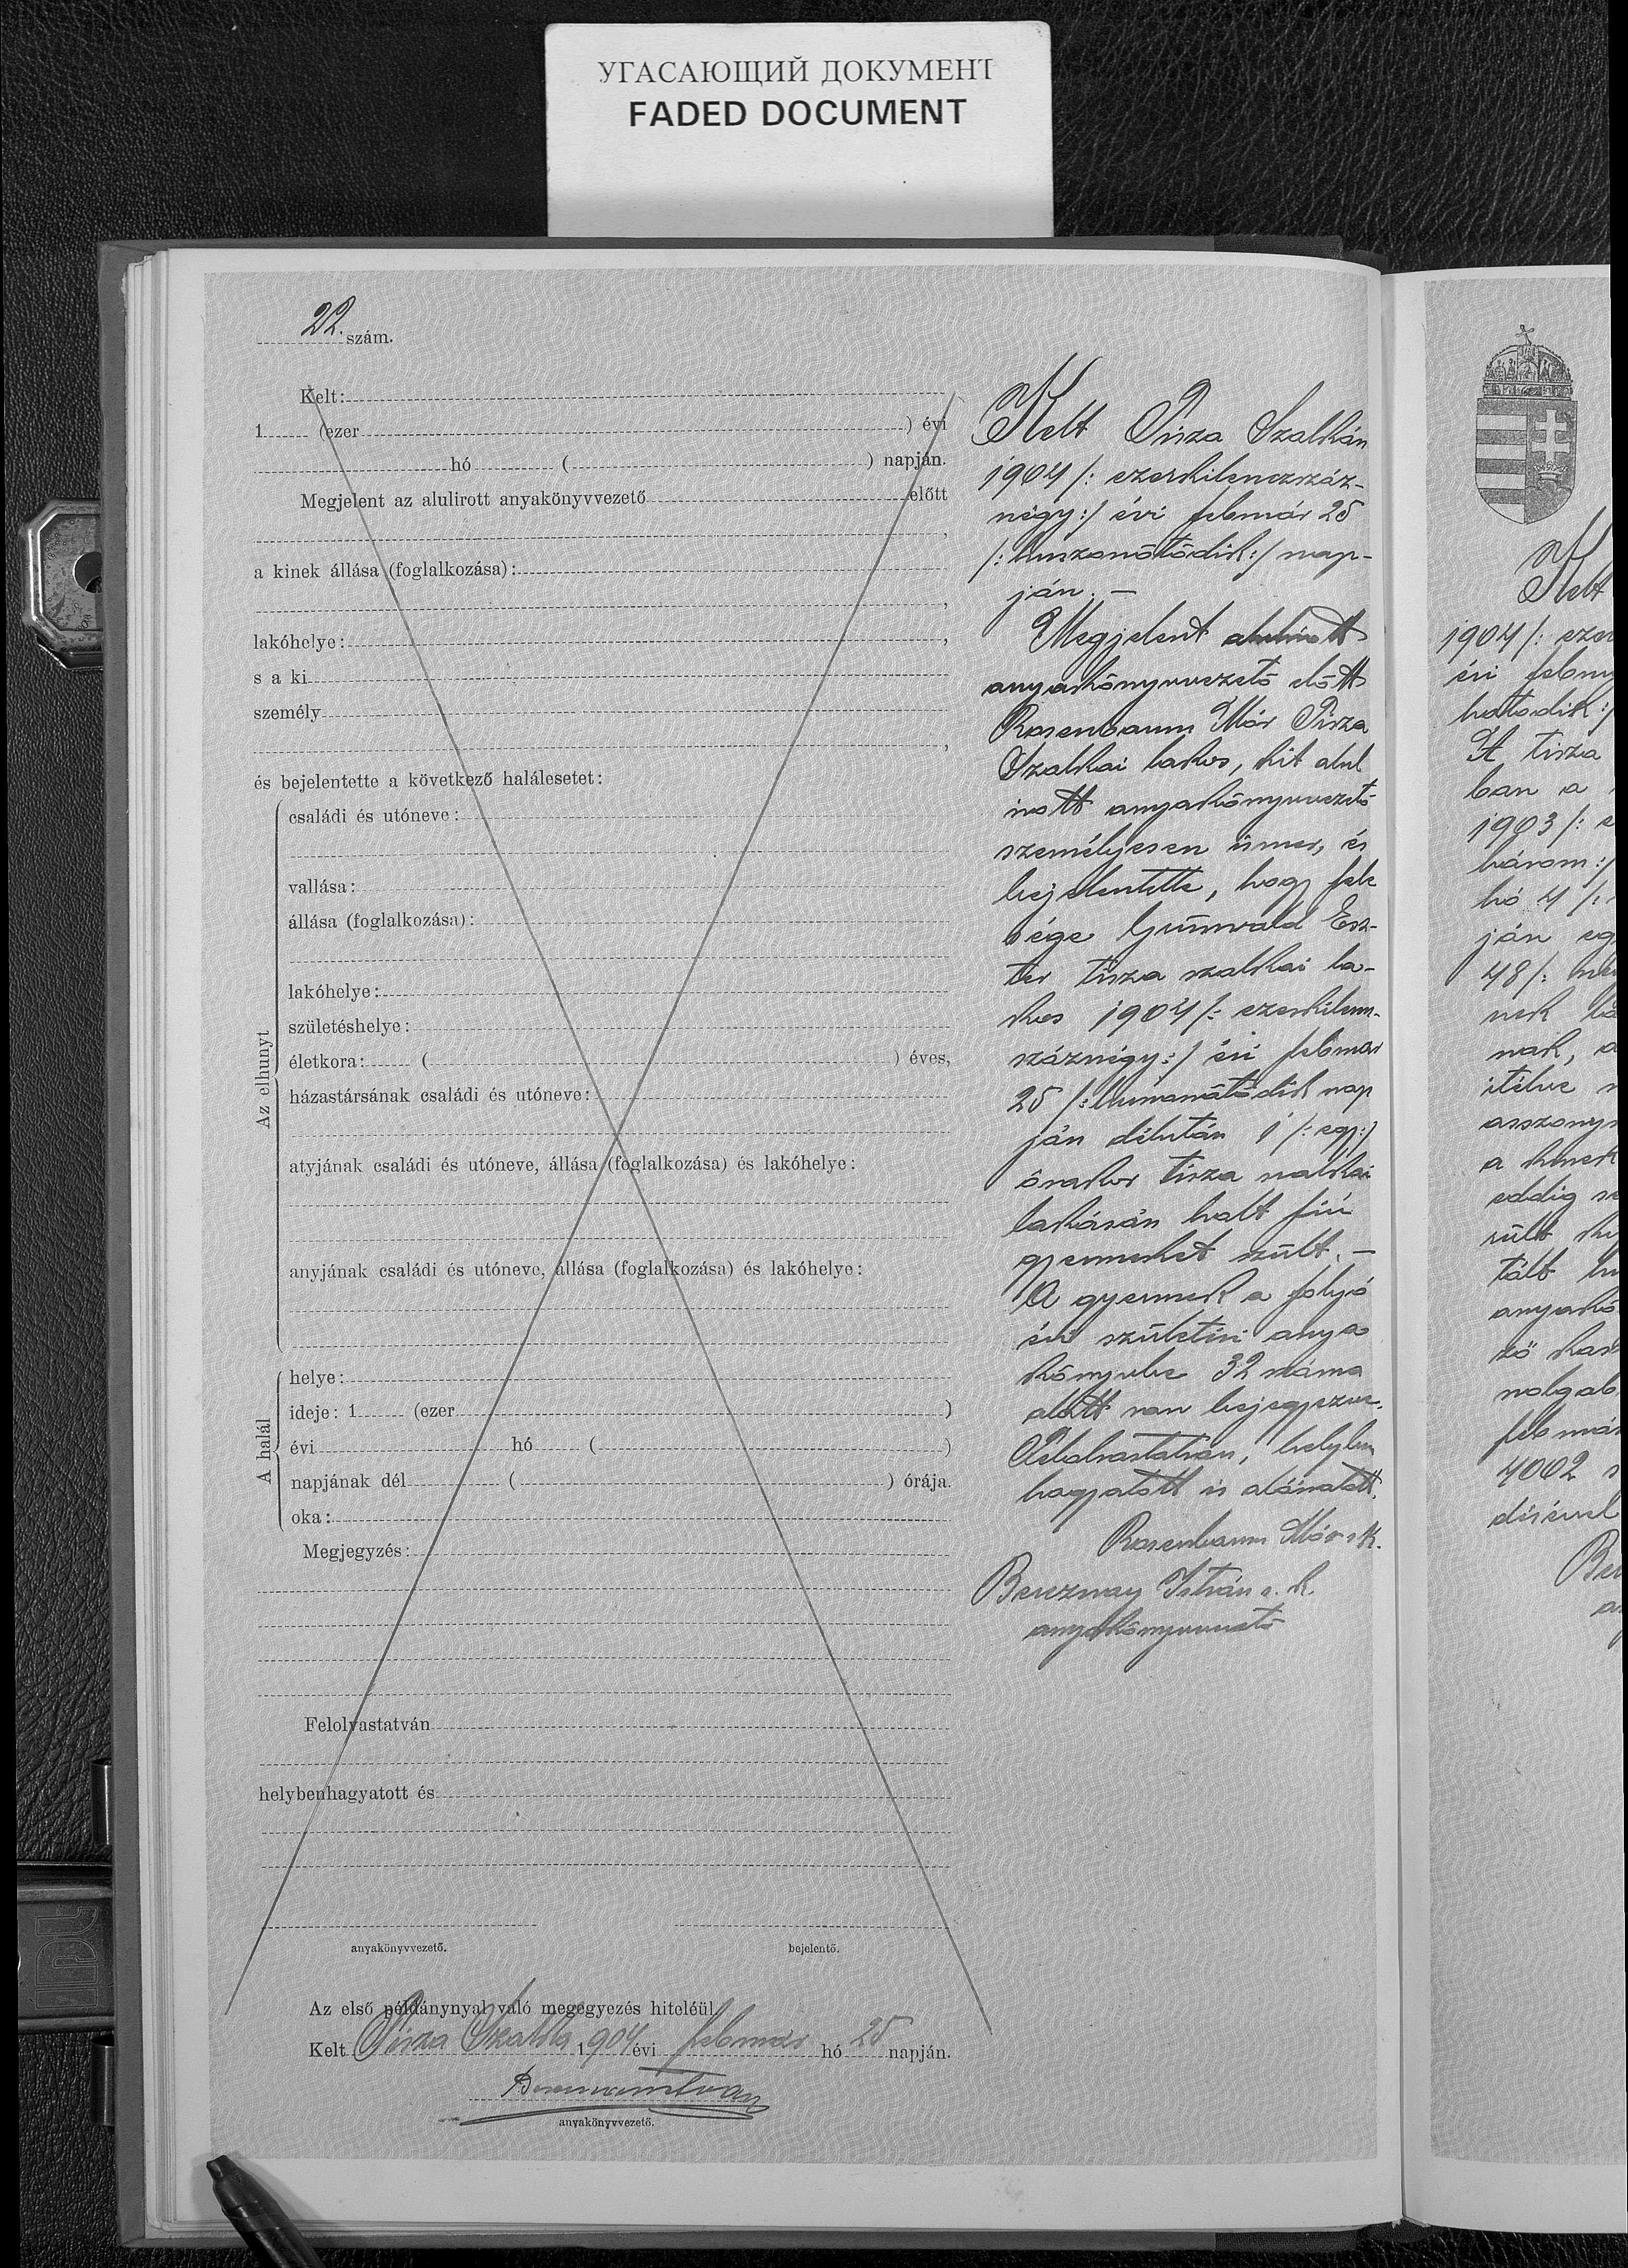 УГАСАЮЩИЙ ДОКУМЕНТ
FADED DOCUMENT
22. szám.
Kelt:
1 (ezer ) évi
hó ( ) napján.
Megjelent az alulirott anyakönyvvezető előtt
,
a kinek állása (foglalkozása):
,
lakóhelye: ,
s a ki
személy
,
és bejelentette a következő halálesetet:
Az elhunyt
családi és utóneve:
vallása:
állása (foglalkozása):
lakóhelye:
születéshelye:
életkora: ( ) éves,
házastársának családi és utóneve:
atyjának családi és utóneve, állása (foglalkozása) és lakóhelye:
anyjának családi és utóneve, állása (foglalkozása) és lakóhelye:
A halál
helye:
ideje: 1 (ezer )
évi hó ( )
napjának dél ( ) órája.
oka:
Megjegyzés:
Felolvastatván
helybenhagyatott és
anyakönyvvezető. bejelentő.
Az első példánynyal való megegyezés hiteléül
Kelt Tisza Szalka 1904 évi február hó 25 napján.
anyakönyvvezető.
Kelt Tisza Szalkán
1904 /: ezerkilenczszáz-
négy :/ évi február 25
/: huszonötödik :/ nap-
ján. —
Megjelent alulirott
anyakönyvvezető előtt
Rosenbaum Mór Tisza
Szalkai lakos, kit alul
irott anyakönyvvezető
személyesen ismer, és
bejelentette, hogy fele
sége Grünwald Esz-
ter tisza szalkai la-
kos 1904 /: ezerkilencz-
száznégy :/ évi február
25 /: huszonötödik nap
ján délután 1 /: egy :/
órakor tisza szalkai
lakásán halt fiú
gyermeket szült. —
A gyermek a folyó
évi születési anya
könyvbe 32 száma
alatt van bejegyezve.
Felolvastatván, helyben
hagyatott és aláiratott.
Rosenbaum Mór s.k.
Bereznay István s. k.
anyakönyvvezető
Kelt
1904 /: ezer
évi febru
hatodik :/
A tisza
ban a
1903 /: e
három :/
hó 4 /:
ján eg
48 /:
nek
nak, a
itélve
asszony
a
eddig
sült
tált
anyakö
ző
febru
4002
Ber